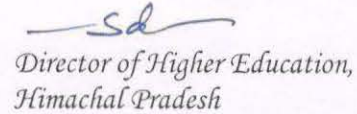 Sd
Director of Higher Education,
Himachal Pradesh